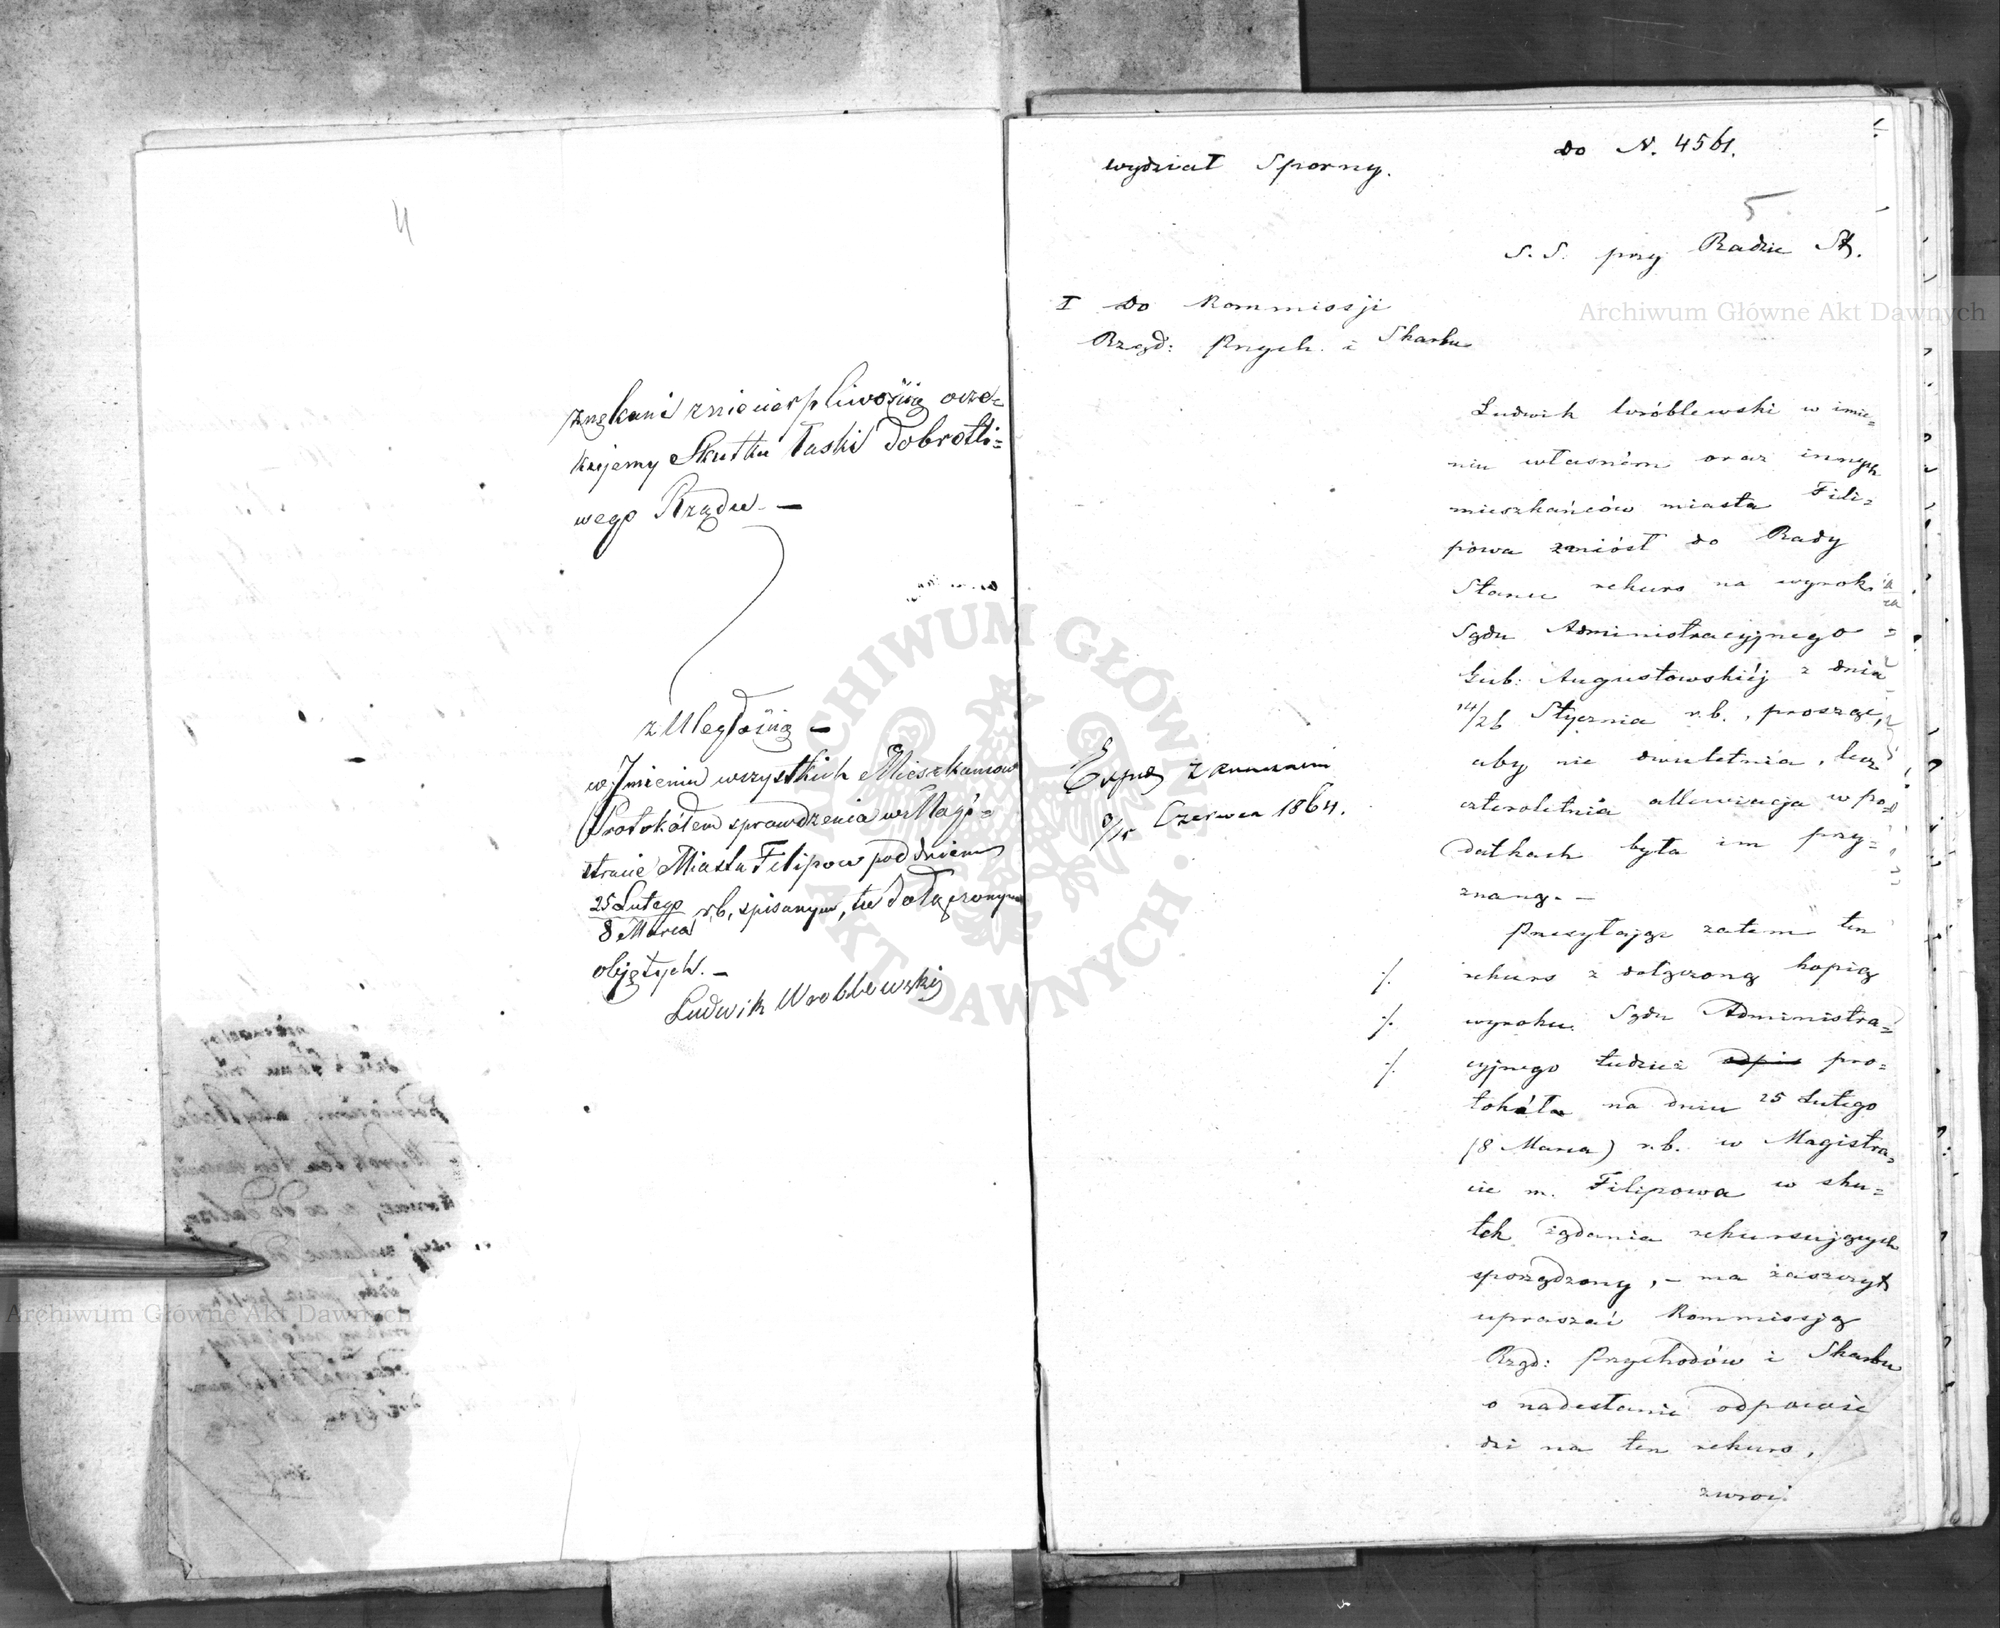 4
znękani z niecierpliwością ocze=
kujemy Skutku Łaski Dobrotli=
wego Rządu. —
z Uległością —
w Imieniu wszystkich Mieszkańców
Protokółem sprawdzenia w Magi=
stracie Miasta Filipow pod dniem
25 Lutego
8 Marca r. b. spisanym, tu dołączonym
objętych. —
Ludwik Wroblewski
wydział Sporny.
do N. 4561.
5
S. S. przy Radzie St.
I do Kommissji
Rząd: Przych. i Skarbu
Ludwik Wróblewski w imie=
niu własném oraz innych
mieszkańców miasta Fili=
powa zaniósł do Rady
Stanu rekurs na wyrok
Sądu Administracyjnego
Gub: Augustowskiéj z dnia
14/26 Stycznia r. b., prosząc,
aby nie dwuletnia, lecz
czteroletnia allewiacja w po=
datkach była im przy=
znaną. —
3/15 Czerwca 1864.
Przesyłając zatem ten
./. rekurs z dołączoną kopią
./. wyroku Sądu Administra=
./. cyjnego tudzież odpis pro=
tokółu na dniu 25 Lutego
(8 Marca) r. b. w Magistra=
cie m. Filipowa w sku=
tek żądania rekursujących
sporządzony, — ma zaszczyt
upraszać Kommissją
Rząd: Przychodów i Skarbu
o nadesłanie odpowie
dzi na ten rekurs,
zwroć
Archiwum Główne Akt Dawnych
Archiwum Główne Akt Dawnych
ARCHIWUM GŁÓWNE AKT DAWNYCH